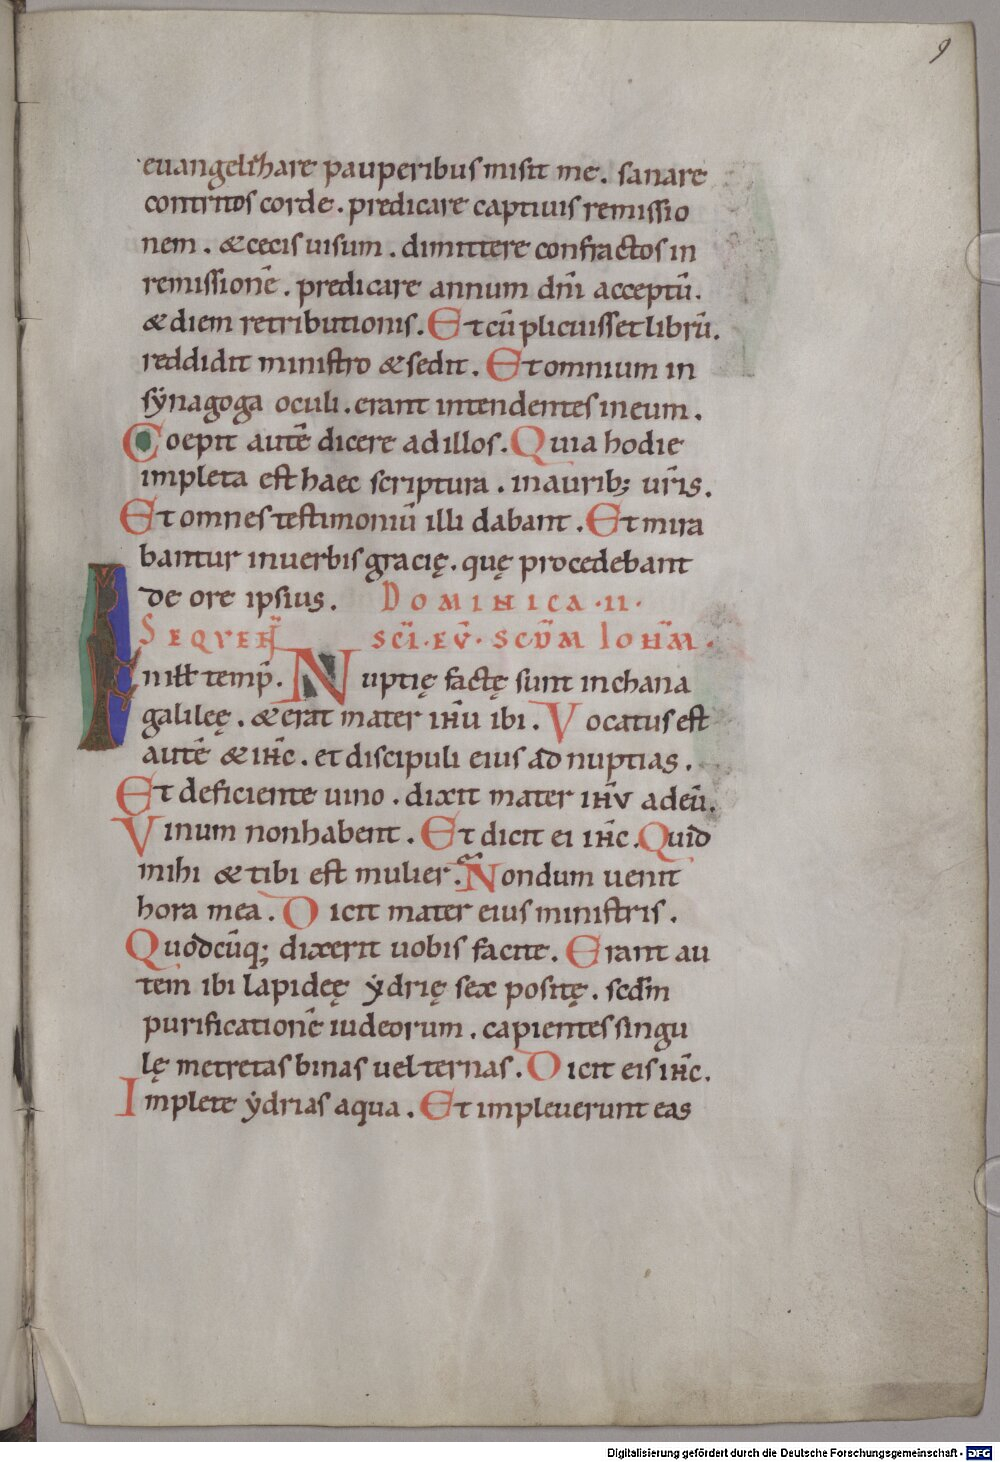 9
euangelizare pauperibus misit me. sanare
contritos corde. predicare captiuis remissio
nem. & cecis uisum. dimittere confractos in
remissionē. predicare annum dñi acceptū.
& diem retributionis. Et cū plicuisset librū.
reddidit ministro & sedit. Et omnium in
sẏnagoga oculi. erant intendentes in eum.
Coepit autē dicere ad illos. Quia hodie
impleta est haec scriptura. in aurib; ur̃is.
Et omnes testimoniū illi dabant. Et mira
bantur in uerbis gracię. quę procedebant
de ore ipsius. DOMINICA .II.
SEQUEN̄ SCĪ. EṼ. SCD̄M IOH̄M.
In ill̵ temp̄. Nuptię factę sunt in chana
galileę. & erat mater ih̄u ibi. Vocatus est
autē & ih̄c. et discipuli eius ad nuptias.
Et deficiente uino. dixit mater ih̄v ad eū.
Vinum non habent. Et dicit ei ih̄c. Quid
mihi & tibi est mulier. Nondum uenit
hora mea. Dicit mater eius ministris.
Quodcūq; dixerit uobis facite. Erant au
tem ibi lapideę ẏdrię sex positę. scd̄m
purificationē iudeorum. capientes singu
lę metretas binas uel ternas. Dicit eis ih̄c.
Implete ẏdrias aqua. Et impleuerunt eas
Digitalisierung gefördert durch die Deutsche Forschungsgemeinschaft - DFG